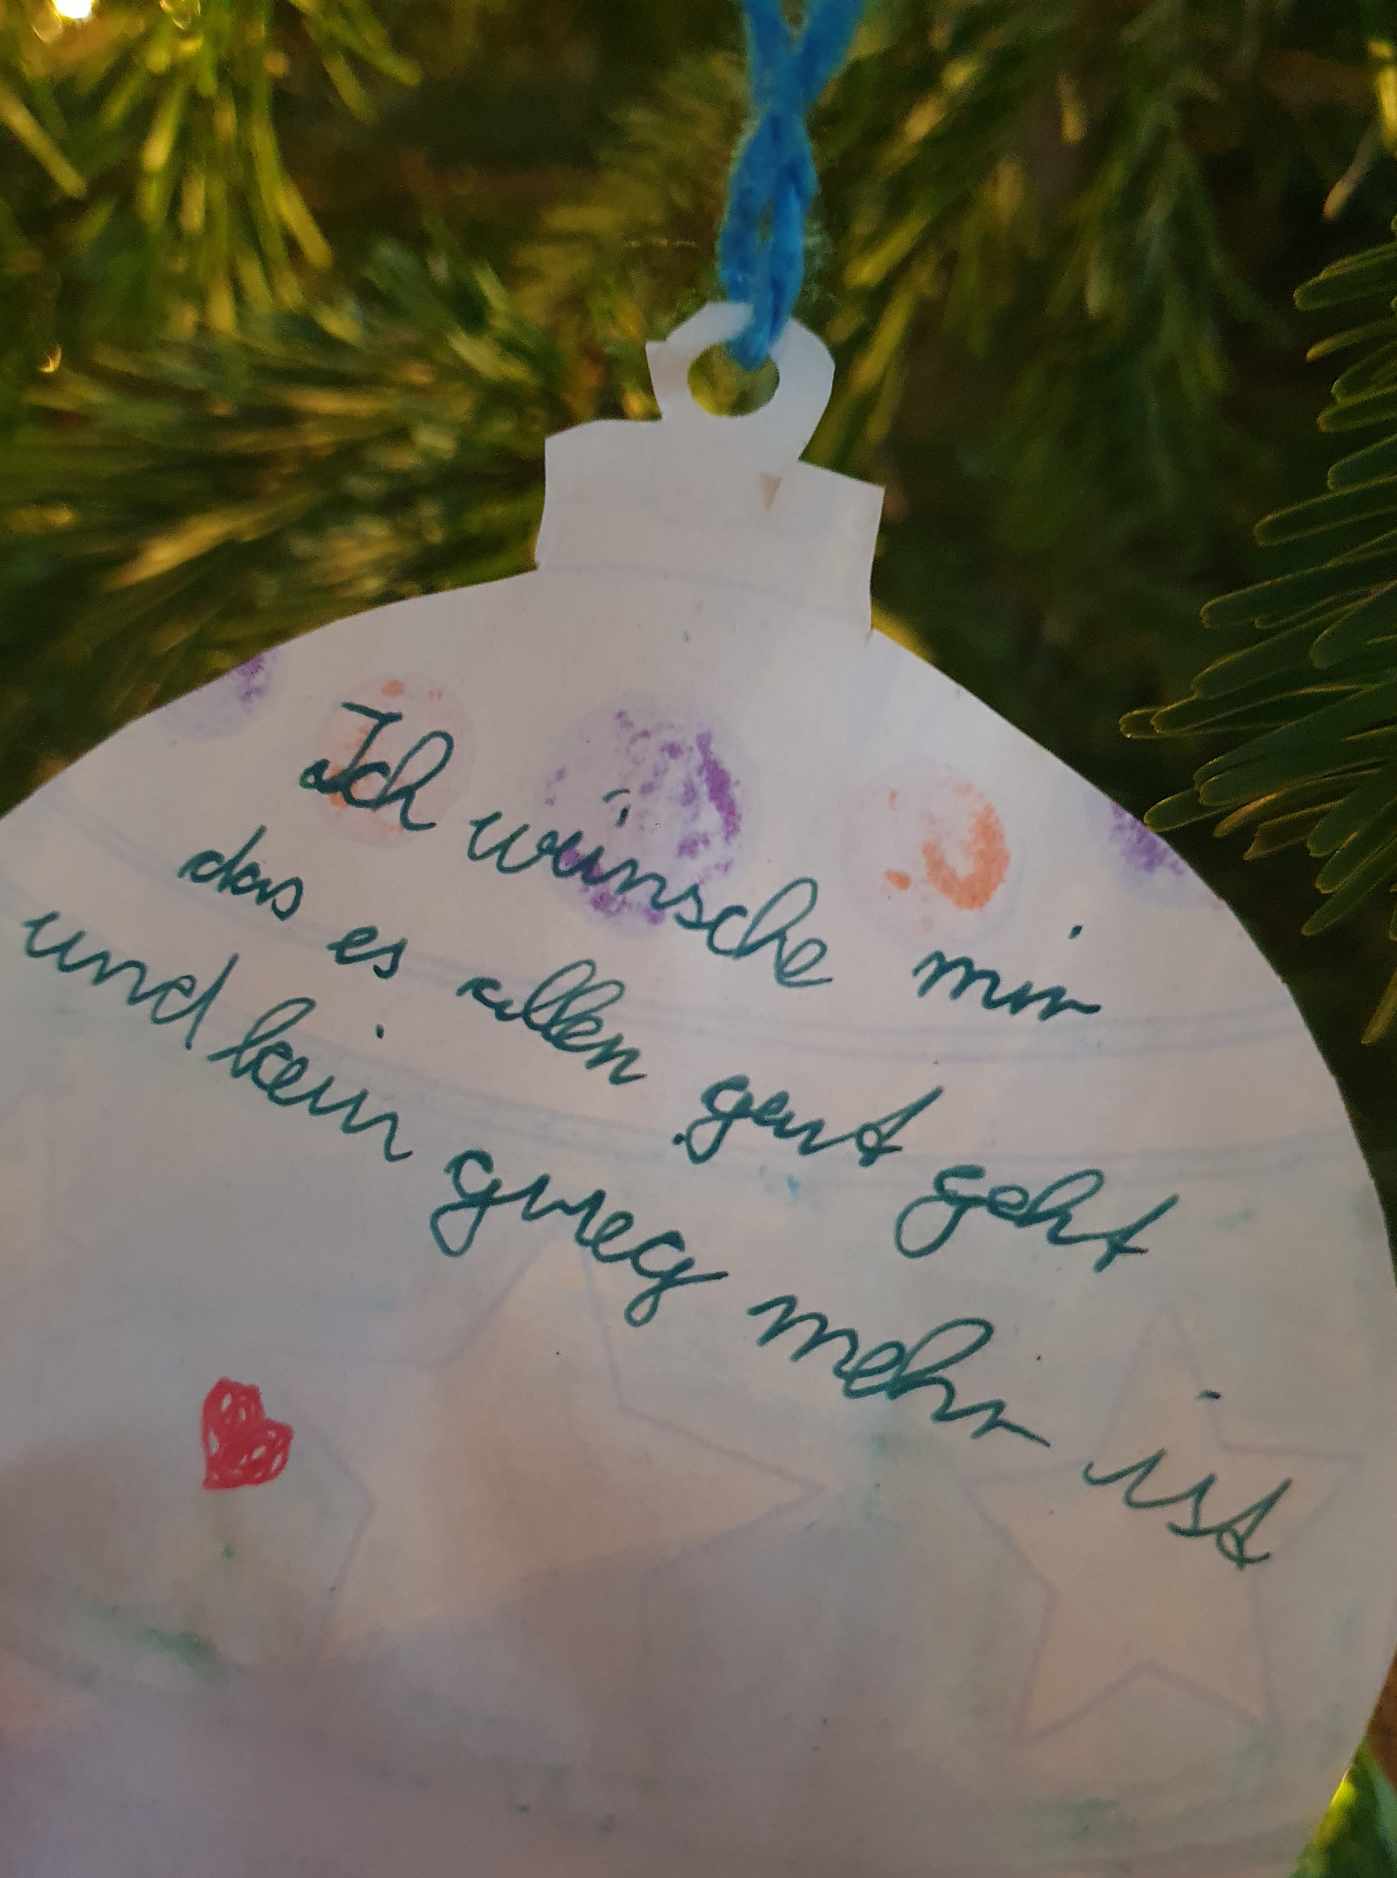 Ich wünsche mir
das es allen gut geht
und kein grieg mehr ist